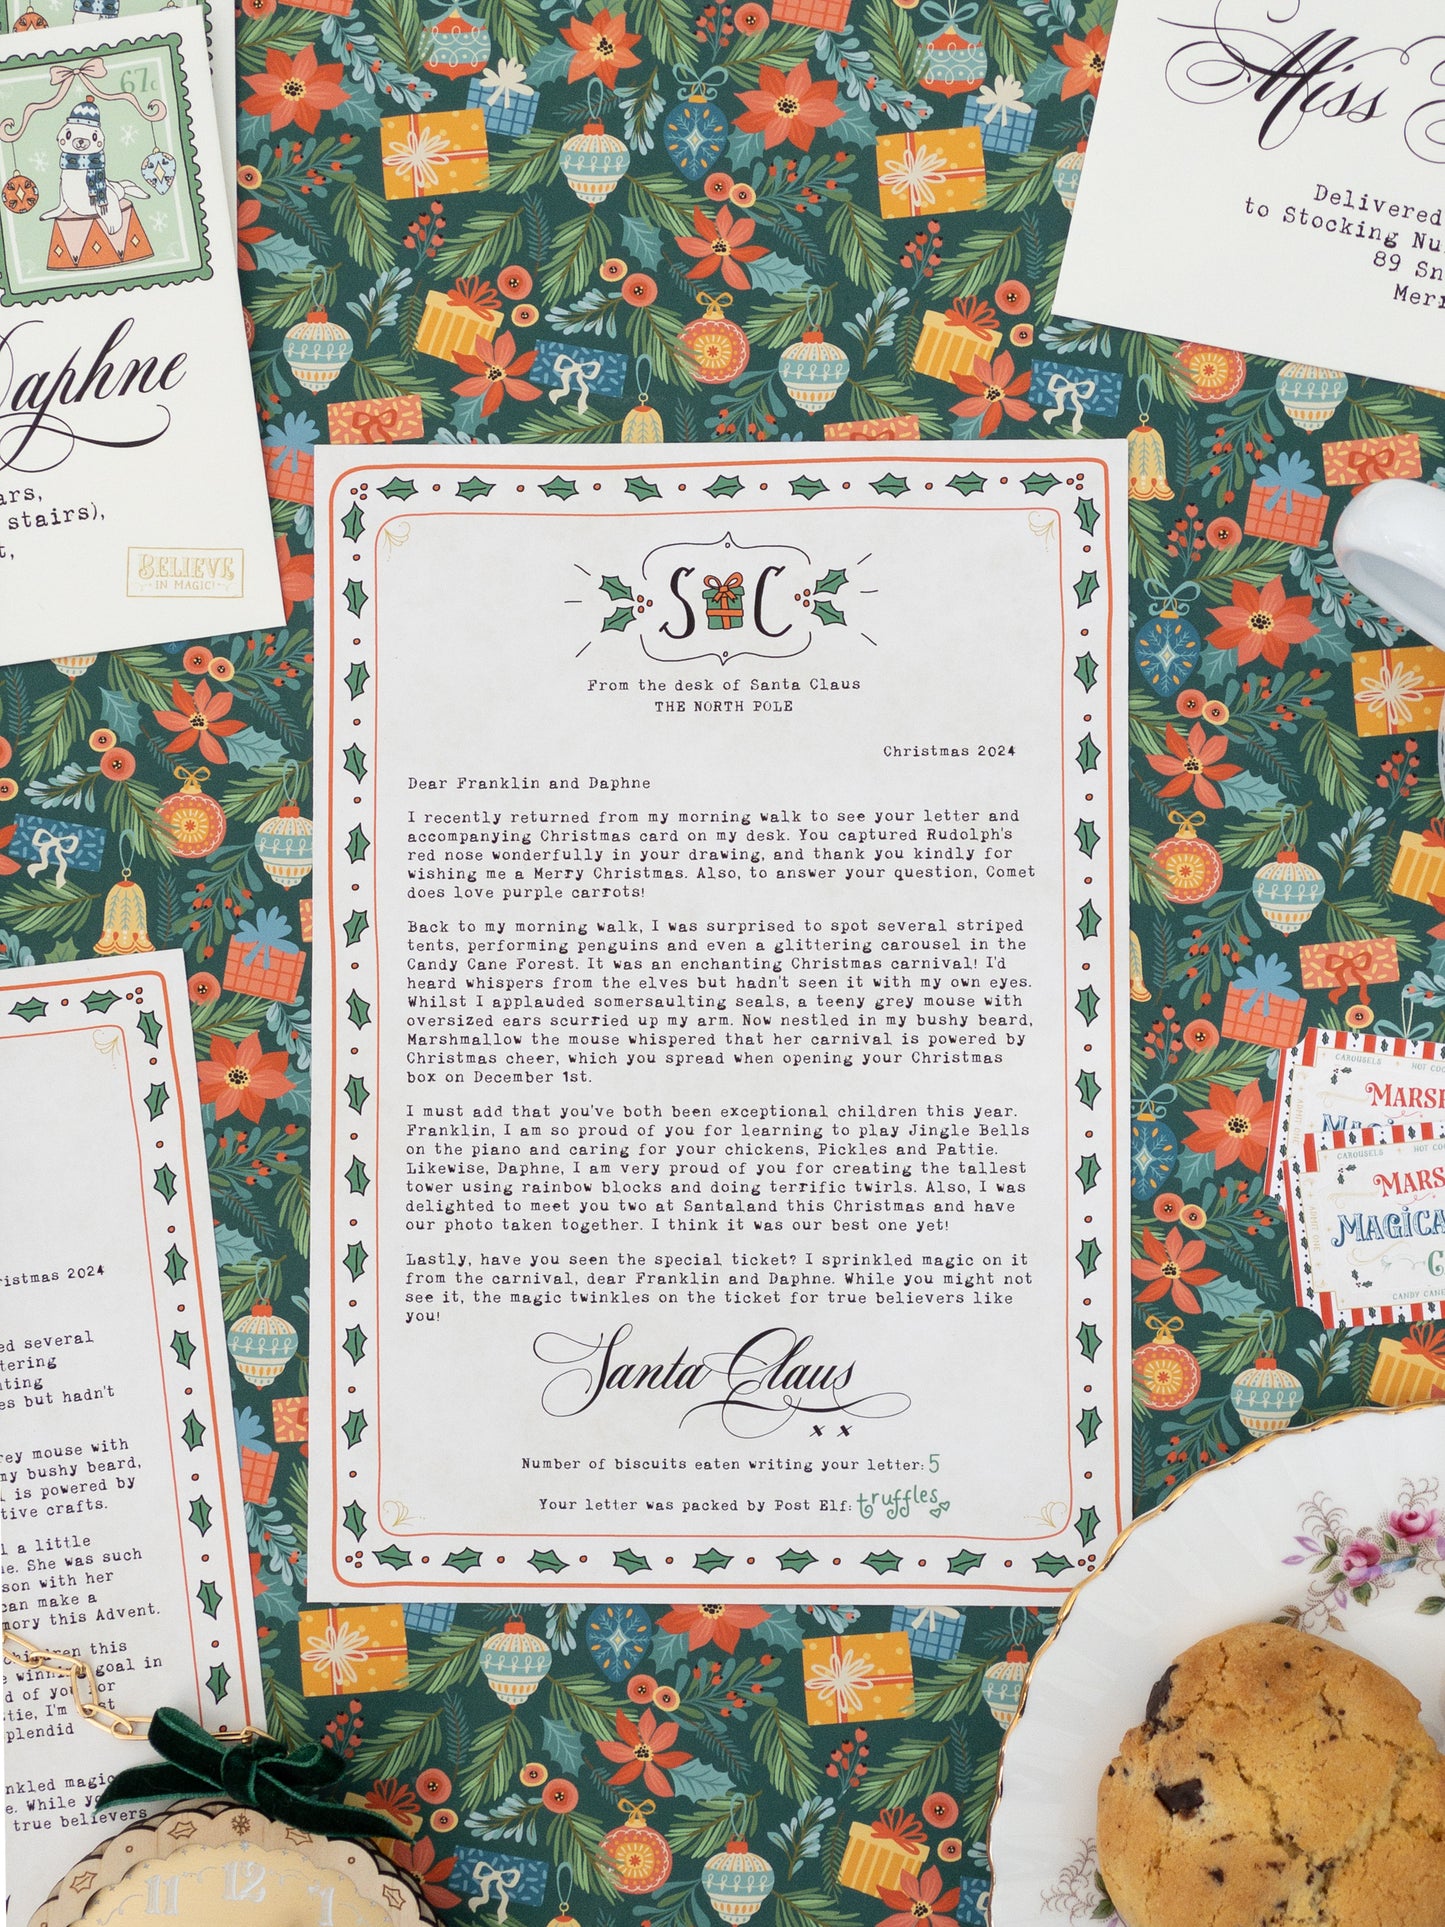 67c
Daphne
ars,
stairs),
t,
BELIEVE
IN MAGIC!
Miss
Delivered
to Stocking Nu
89 Sn
Merr
S C
From the desk of Santa Claus
THE NORTH POLE
Christmas 2024
Dear Franklin and Daphne
I recently returned from my morning walk to see your letter and
accompanying Christmas card on my desk. You captured Rudolph's
red nose wonderfully in your drawing, and thank you kindly for
wishing me a Merry Christmas. Also, to answer your question, Comet
does love purple carrots!
Back to my morning walk, I was surprised to spot several striped
tents, performing penguins and even a glittering carousel in the
Candy Cane Forest. It was an enchanting Christmas carnival! I'd
heard whispers from the elves but hadn't seen it with my own eyes.
Whilst I applauded somersaulting seals, a teeny grey mouse with
oversized ears scurried up my arm. Now nestled in my bushy beard,
Marshmallow the mouse whispered that her carnival is powered by
Christmas cheer, which you spread when opening your Christmas
box on December 1st.
I must add that you've both been exceptional children this year.
Franklin, I am so proud of you for learning to play Jingle Bells
on the piano and caring for your chickens, Pickles and Pattie.
Likewise, Daphne, I am very proud of you for creating the tallest
tower using rainbow blocks and doing terrific twirls. Also, I was
delighted to meet you two at Santaland this Christmas and have
our photo taken together. I think it was our best one yet!
Lastly, have you seen the special ticket? I sprinkled magic on it
from the carnival, dear Franklin and Daphne. While you might not
see it, the magic twinkles on the ticket for true believers like
you!
Santa Claus
x x
Number of biscuits eaten writing your letter: 5
Your letter was packed by Post Elf: truffles
ristmas 2024
ed several
tering
ting
es but hadn't
rey mouse with
my bushy beard,
l is powered by
tive crafts.
l a little
e. She was such
son with her
can make a
mory this Advent.
children this
e winning goal in
d of you for
tie, I'm
plendid
nkled magic
e. While yo
true believers
CAROUSELS HOT COC
MARSH
ADMIT ONE
CAROUSELS HOT COC
MARS
MAGICA
C
ADMIT ONE
CANDY CANE
11 12 1